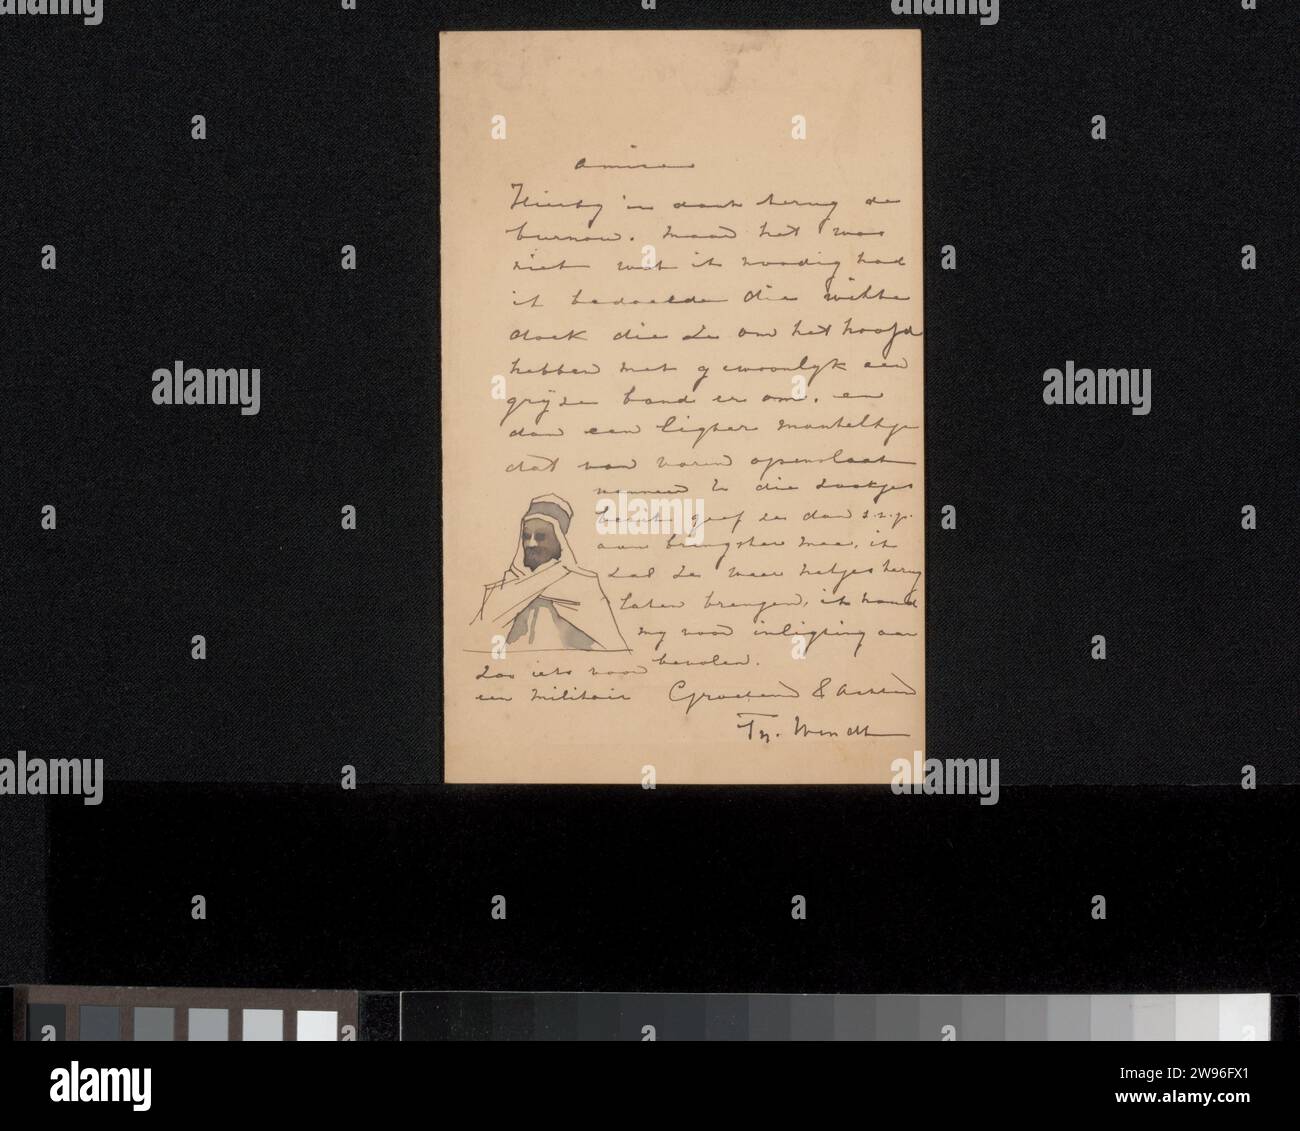 Amice
Hierbij in dank terug de
burnou. maar het was
niet wat ik noodig had
ik bedoelde die witte
doek die ze om het hoofd
hebben met gewoonlijk een
grijze band er om. en
dan een ligter manteltje
dat van voren openslaat
wanneer U die zaakjes
geef ze dan s.v.p.
aan brengster mee, ik
zal ze weer netjes terug
laten brengen, ik houd
my voor inligting aan
bevolen.
zoo iets voor
een militair
Groetend & Achtend
Ty. Wendt
alamy
Image ID: 2W96FX1
www.alamy.com